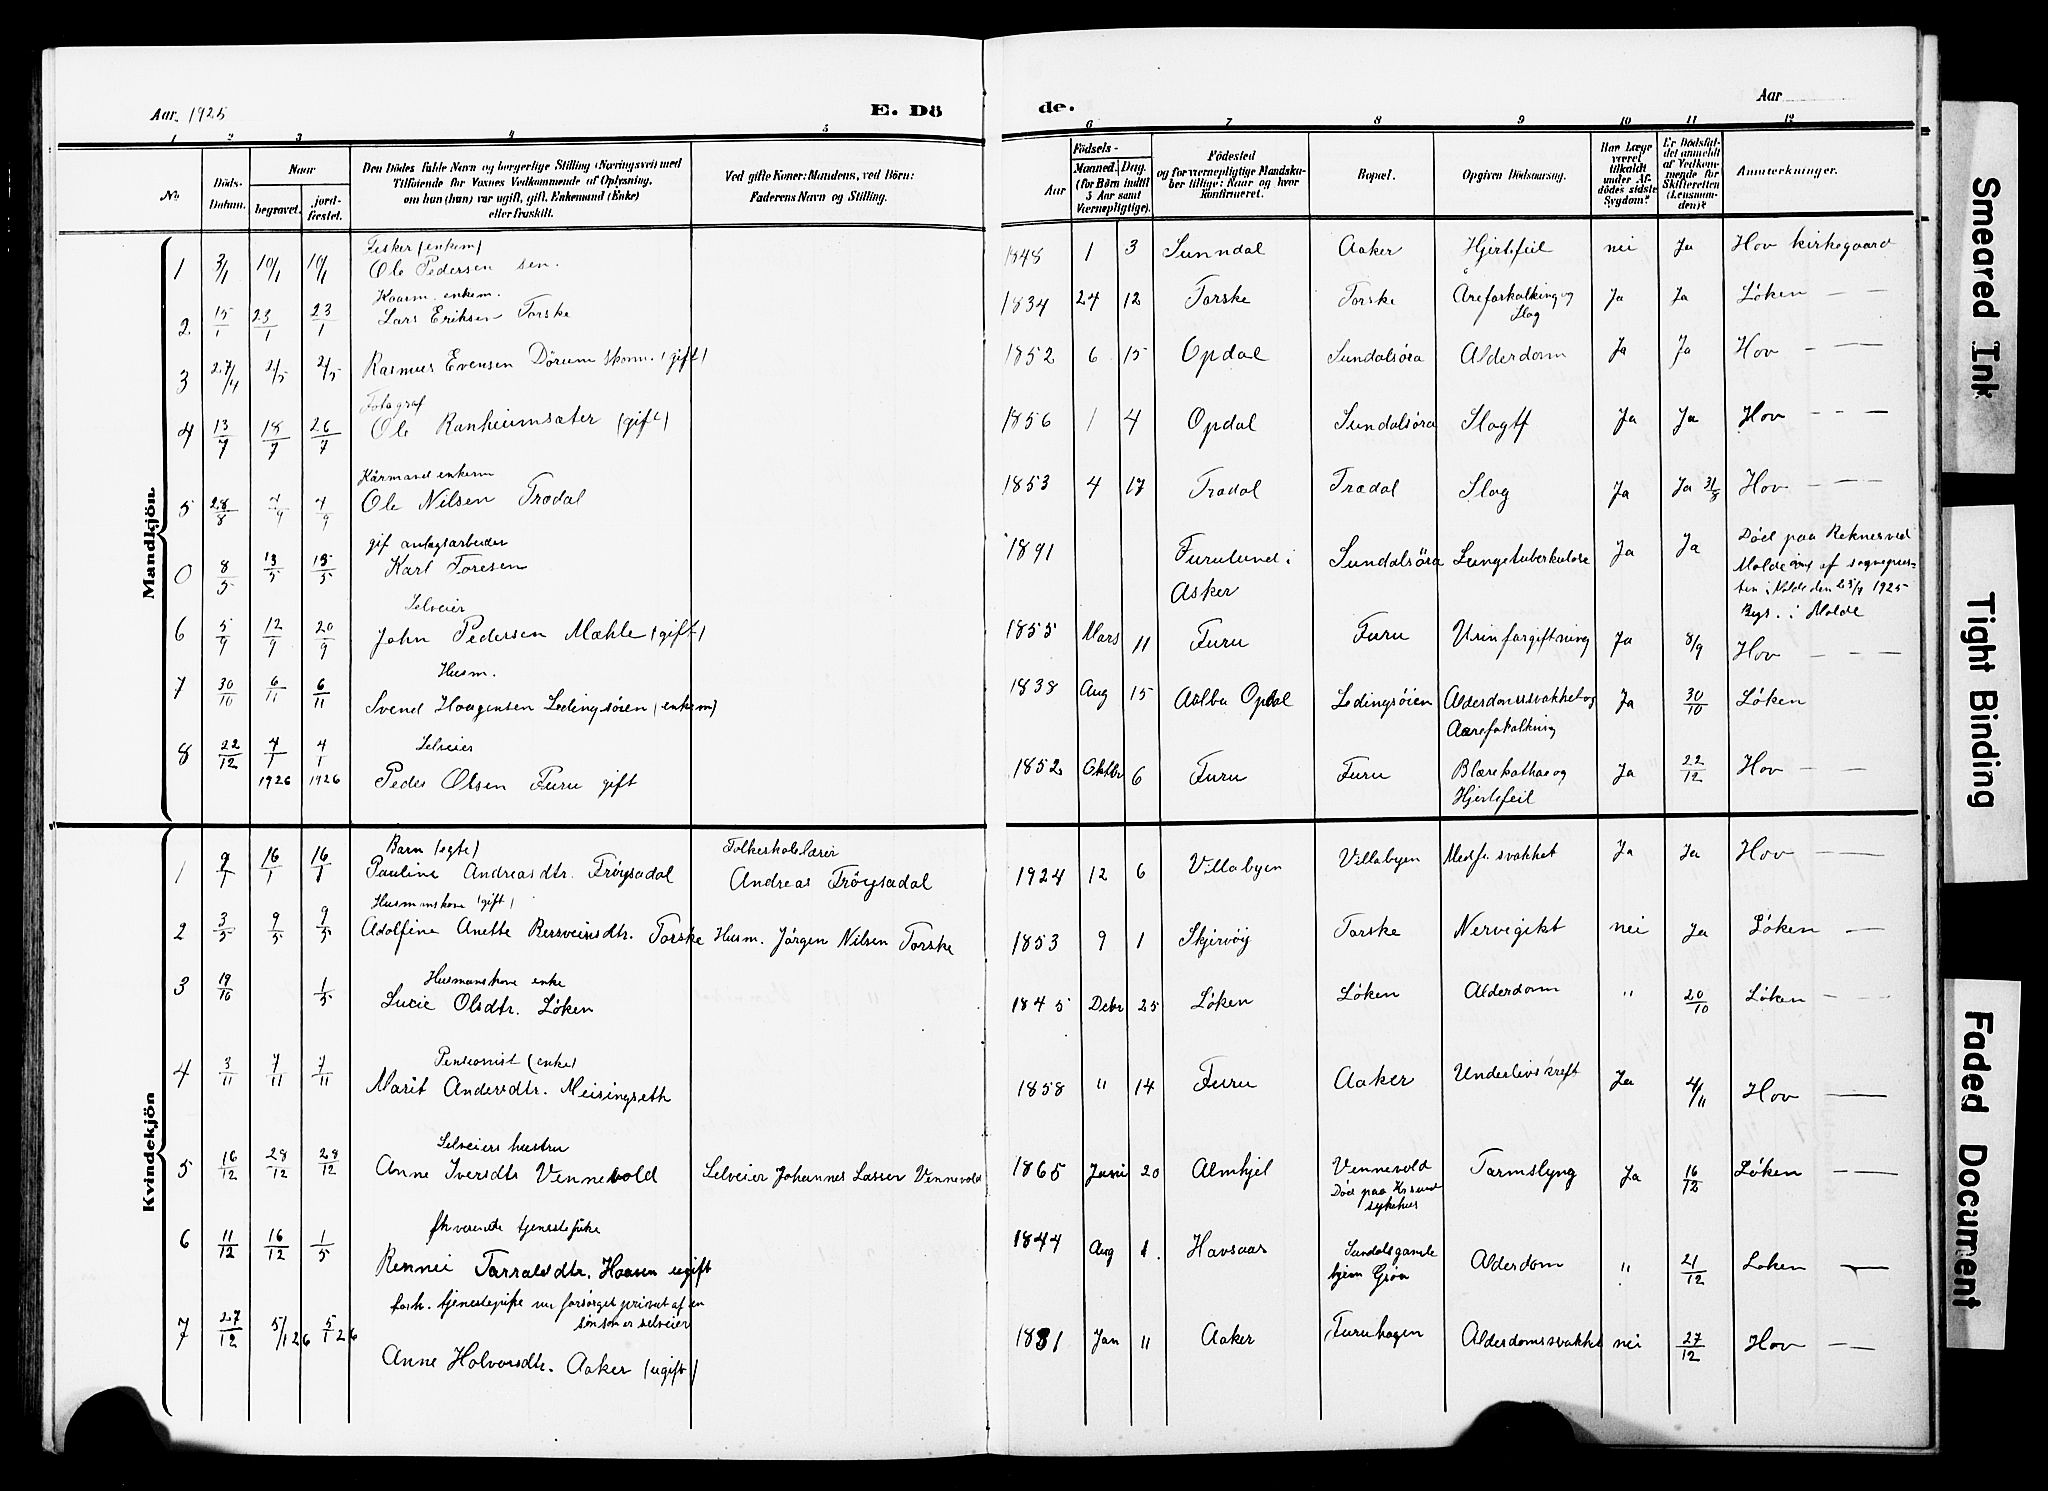 Aar. 1925
E. Dö
de.
Aar
1 2 3 4 5
6 7 8 9 10 11 12
No.
Döds-Datum.
Naar
begravet.
jord-fæstet.
Den Dödes fulde Navn og borgerlige Stilling (Næringsvei) med
Tilföiende for Voxnes Vedkommende af Oplysning,
om han (hun) var ugift, gift, Enkemand (Enke)
eller fraskilt.
Ved gifte Koner: Mandens, ved Börn:
Faderens Navn og Stilling.
Födsels-
Aar
Maaned. Dag.
(for Börn indtil
5 Aar samt
Værnepligtige).
Födested
og for værnepligtige Mandska-
ber tillige: Naar og hvor
konfirmeret.
Bopæl.
Opgiven Dödsaarsag.
Har Læge
været
tilkaldt
under Af-
dödes sidste
Sygdom?
Er Dödsfal-
det anmeldt
af Vedkom-
mende for
Skifteretten
(Lensman-
den)?
Anmærkninger.
Mandkjön.
1 3/1 10/1 10/1 Fisker (enkem)
Ole Pedersen sen. 1848 1 3 Sunndal Aaker Hjertefeil nei Ja Hov kirkegaard
2 15/1 23/1 23/1 Kaarm. enkem.
Lars Eriksen Torske 1834 24 12 Torske Torske Åreforkalkning og
Slag Ja Ja Löken — —
3 27/4 2/5 2/5 Rasmus Evensen Dörum skom. (gift) 1852 6 15 Opdal Sundalsöra Alderdom Ja Ja Hov — —
4 13/7 18/7 26/7 Fotograf
Ole Ranheimsæter (gift) 1856 1 4 Opdal Sundalsöra Slagtf Ja Ja Hov — — —
5 28/8 4/9 4/9 Kårmand enkem
Ole Nilsen Trædal 1853 4 17 Trædal Trædal Slag Ja Ja 31/8 Hov — — —
0 8/5 13/5 13/5 gif anlægsarbeider
Karl Toresen 1891 Furulund i
Asker Sundalsöra Lungetuberkulose Ja Ja Död paa Reknes ved
Molde anm af sogneprus-
ten i Molde den 23/9 1925
Begr. i Molde
6 5/9 12/9 20/9 Selveier
John Pedersen Mæhle (gift) 1855 Mars 11 Furu Furu Urinforgiftning Ja 8/9 Hov — —
7 30/10 6/11 6/11 Husm.
Svend Haagensen Ledingsöien (enkem) 1838 Aug 15 Aalbu Opdal Ledingsöien Alderdomssvakhet og
Aareforkalkning Ja 30/10 Löken
8 22/12 4/1 1926 4/1 1926 Selveier
Peder Olsen Furu gift 1852 Oktbr 6 Furu Furu Blærekathar og
Hjertefeil Ja 22/12 Hov — —
Kvindekjön
1 9/1 16/1 16/1 Barn (egte)
Pauline Andreasdtr. Fröysadal Folkeskolelærer
Andreas Fröysadal 1924 12 6 Villabyen Villabyen Medf. svakhet Ja Ja Hov — —
2 3/5 9/5 9/5 Husmanskone (gift)
Adolfine Anette Bersveinsdtr. Torske Husm. Jörgen Nilsen Torske 1853 9 1 Skjervöy Torske Nervegikt nei Ja Löken —
3 19/10 1/5 Husmanskone enke
Lucie Olsdtr. Löken 1845 Debr 25 Löken Löken Alderdom " 20/10 Löken — —
4 3/11 7/11 7/11 Pensionist (enke)
Marit Andersdtr. Meisingseth 1858 " 14 Furu Aaker Underlivskreft Ja 4/11 Hov —
5 16/12 28/12 28/12 Selveiers hustru
Anne Iversdtr Vennevold Selveier Johannes Lassen Vennevold 1865 Juni 20 Almhjel Vennevold
Död paa Krsund
sykehus Tarmslyng Ja 16/12 Löken — —
6 11/12 16/12 1/5 fhverende tjenestepike
Rennei Tarraldtr. Haasen ugift 1844 Aug 1. Havsaas Sundalsgamle
hjem Gröa Alderdom " 21/12 Loken —
7 27/12 5/1 26 5/1 26 forh. tjenestepike nu forsörget privat af en
sön som er selveier
Anne Halvorsdtr. Aaker (ugift) 1831 Jan 11 Aaker Furuhagen Alderdomssvakhet nei 27/12 Hov — —
Smeared Ink
Tight Binding
Faded Document